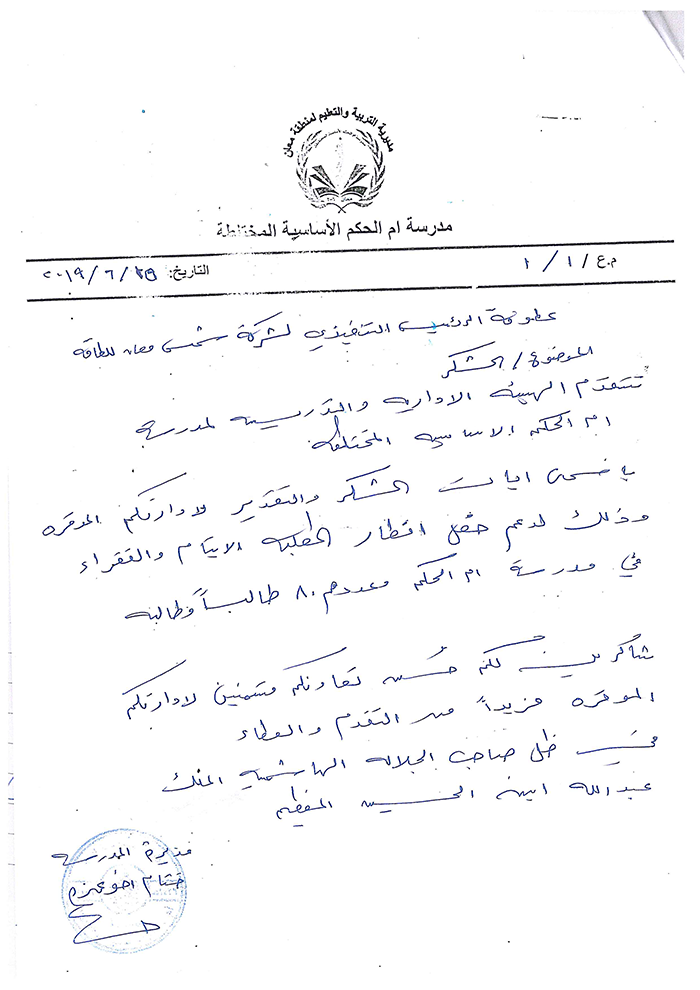 مديرية التربية والتعليم لمنطقة معان
مدرسة ام الحكم الأساسية المختلطة
م.ع / ١ / ١
التاريخ: ٢٥ / ٦ / ٢٠١٩
عطوفة الرئيس التنفيذي لشركة شمس معان للطاقة
الموضوع / الشكر
تتقدم الهيئة الادارية والتدريسية لمدرسة
ام الحكم الاساسية المختلطة
بأسمى ايات الشكر والتقدير لادارتكم الموقره
وذلك لدعم حفل افطار الطلبه الايتام والفقراء
في مدرسة ام الحكم وعددهم ٨٠ طالباً وطالبه
شاكرين لكم حُسن تعاونكم متمنين لادارتكم
الموقره مزيداً من التقدم والعطاء
في ظل صاحب الجلاله الهاشميه الملك
عبدالله ابن الحسين المعظم
مديرة المدرسه
ختام